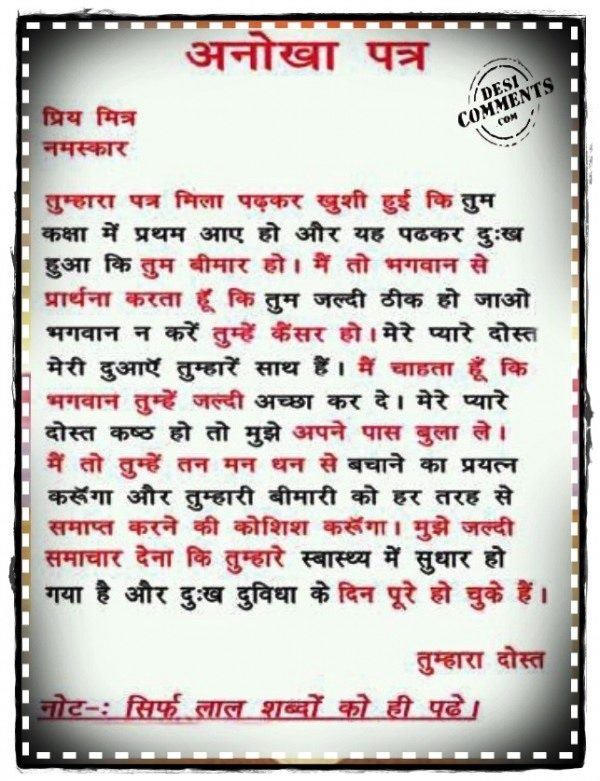 अनोखा पत्र
DESI
COMMENTS
.COM
प्रिय मित्र
नमस्कार
तुम्हारा पत्र मिला पढ़कर खुशी हुई कि तुम
कक्षा में प्रथम आए हो और यह पढकर दुःख
हुआ कि तुम बीमार हो। मैं तो भगवान से
प्रार्थना करता हूँ कि तुम जल्दी ठीक हो जाओ
भगवान न करें तुम्हें कैंसर हो। मेरे प्यारे दोस्त
मेरी दुआएॅ तुम्हारें साथ हैं। मैं चाहता हूँ कि
भगवान तुम्हें जल्दी अच्छा कर दे। मेरे प्यारे
दोस्त कष्ठ हो तो मुझे अपने पास बुला ले।
मैं तो तुम्हें तन मन धन से बचाने का प्रयत्न
करूँगा और तुम्हारी बीमारी को हर तरह से
समाप्त करने की कोशिश करूँगा। मुझे जल्दी
समाचार देना कि तुम्हारे स्वास्थ्य में सुधार हो
गया है और दुःख दुविधा के दिन पूरे हो चुके हैं।
तुम्हारा दोस्त
नोट-: सिर्फ लाल शब्दों को ही पढे।